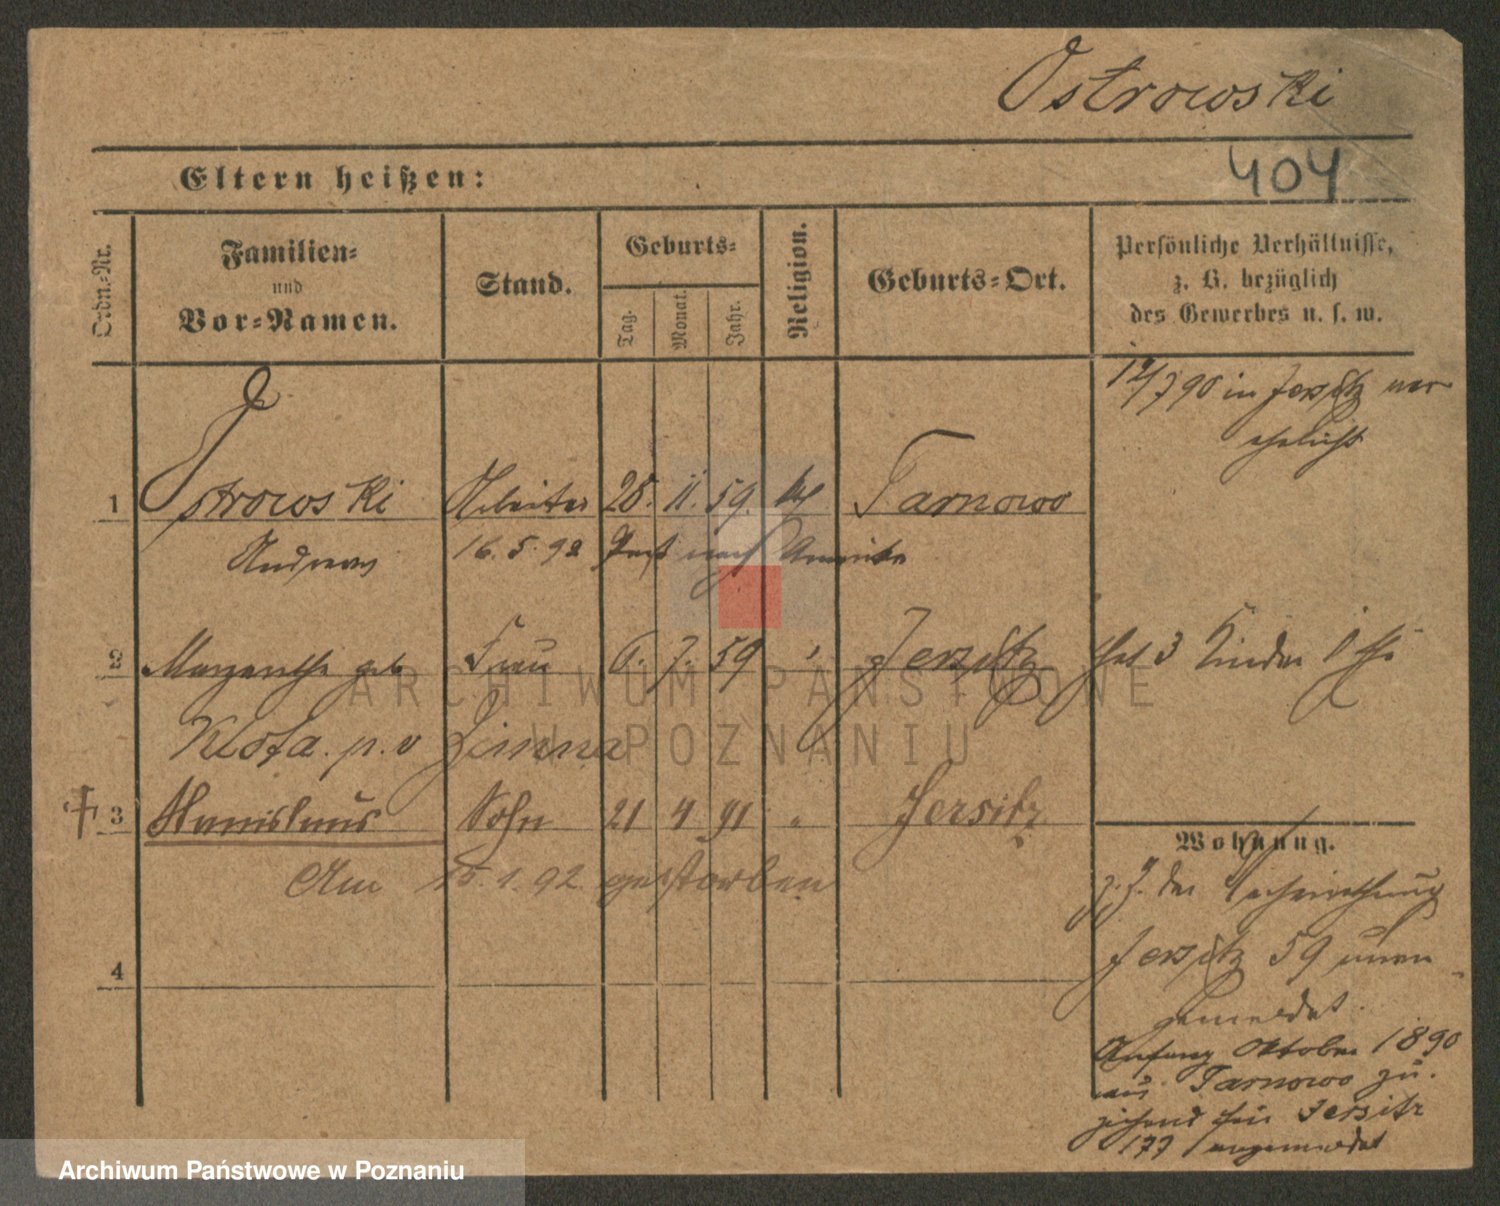 Ostrowski
404
Eltern heißen:
Ordn.-Nr.
Familien-
und
Vor-Namen.
Stand.
Geburts-
Tag.
Monat.
Jahr.
Religion.
Geburts-Ort.
Persönliche Verhältnisse,
z. B. bezüglich
des Gewerbes u. s. w.
in Jersitz ver
ehelicht
1 Ostrowski Arbeiter 28. 11. 59. Tarnowo
Andreas 16. 5. 92 nach Amerika
2 geb Frau 6. 7. 59 Jersitz hat 3 Kinder
p. v
3 Stanislaus Sohn 21 4 91 " Jersitz
Am 1. 92 gestorben
4
Wohnung.
z. Z. der
Jersitz 59 unan
gemeldet.
Anfang Oktober 1890
aus Tarnowo zu-
ziehend für Jersitz
177 angemeldet
ARCHIWUM PAŃSTWOWE
W POZNANIU
Archiwum Państwowe w Poznaniu